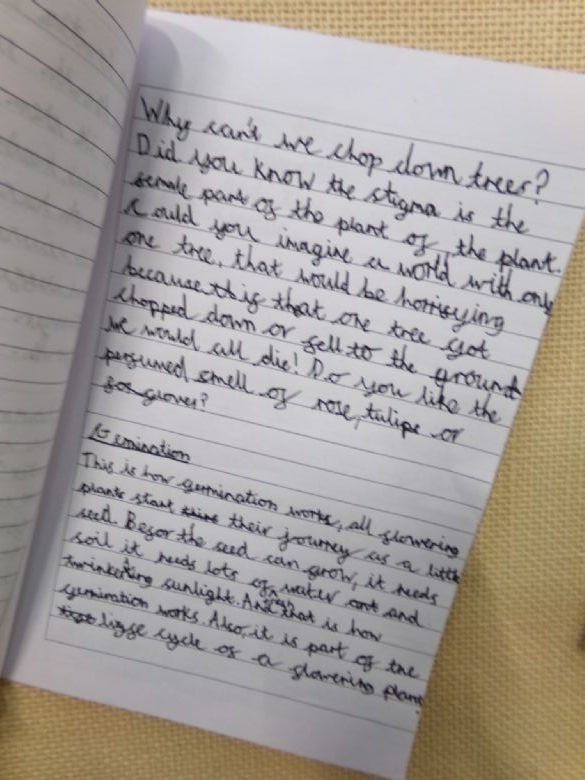 Why can't we chop down trees?
Did you know the stigma is the
female part of the plant of the plant.
Could you imagine a world with only
one tree, that would be horrifying
because this if that one tree got
chopped down or fell to the ground
we would all die! Do you like the
perfumed smell of rose, tulips or
for glover?
Germination
This is how germination works, all flowering
plants start their journey as a little
seed. Befor the seed can grow, it needs
soil it needs lots of water and
sunlight. And that is how
germination works. Also, it is part of the
life cycle of a flowering plant